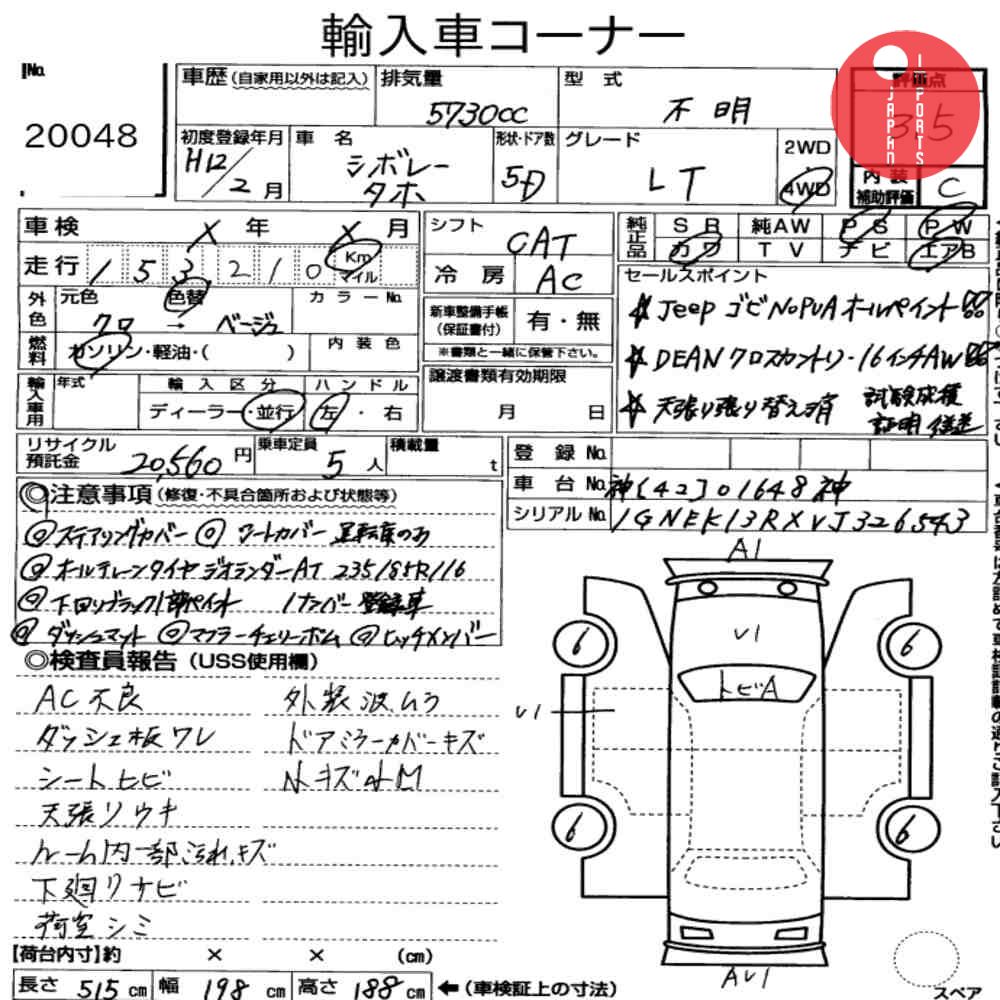 輸入車コーナー
No.
20048
車歴（自家用以外は記入）
排気量
5730cc
型 式
不 明
評価点
3.5
JAPAN
IMPORTS
初度登録年月
H12/2月
車 名
シボレー
タホ
形状・ドア数
5D
グレード
LT
2WD
4WD
内 装
補助評価
C
車検 X 年 X 月
走行 153210 Km
マイル
シフト
CAT
冷 房
AC
純正品
S R
純AW
P S
P W
カワ
T V
ナビ
エアB
外色
元色
色替
カラーNo.
クロ → ベージュ
燃料
ガソリン・軽油・(　　)
内 装 色
新車整備手帳
（保証書付）
有・無
※書類と一緒に保管下さい。
セールスポイント
☆ Jeep ゴビNOPUAオールペイント
☆ DEAN クロスカントリー16インチAW
☆ 天張り張り替え済
試験成績
証明
輸入車用
年式
輸 入 区 分
ハ ン ド ル
ディーラー・並行
左・右
譲渡書類有効期限
月　日
リサイクル
預託金
20,560円
乗車定員
5人
積載量
t
登 録 No.
車 台 No. 神[42]01648神
シリアル No. 1GNEK13RXVJ326543
◎注意事項（修復・不具合箇所および状態等）
◎ステアリングカバー ◎シートカバー 運転席のみ
◎オールテレーンタイヤ ジオランダーAT 235/85R/16
◎下回りブラック1部ペイント 1ナンバー登録車
◎ダッシュマット ◎マフラーチェリーボム ◎ヒッチメンバー
◎検査員報告（USS使用欄）
AC不良
外装波ムラ
ダッシュ板ワレ
ドアミラーカバーキズ
シートヒビ
小キズ小凹
天張りウキ
ルーム内一部汚れ、キズ
下廻りサビ
荷室シミ
A1
V1
トビA
V1
6
6
6
6
AV1
スペア
【荷台内寸】約　×　×　(cm)
長さ 515 cm
幅 198 cm
高さ 188 cm
←（車検証上の寸法）